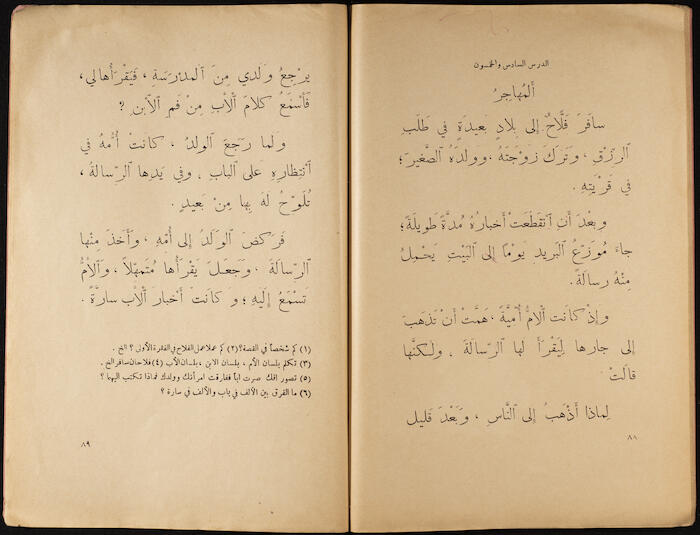 الدرس السادس والخمسون
أَلمُهاجِرُ
سافَرَ فَلَّاحٌ إلى بِلادٍ بَعيدَةٍ في طَلَبِ
الرِزْقِ ، وَتَرَكَ زَوْجَتَهُ ، وَوَلَدَهُ الصَّغيرَ ؛
في قَرْيَتِهِ .
وبَعْدَ أنِ ٱنْقَطَعَتْ أخبارُهُ مُدَّةً طَويلَةً ؛
جاءَ مُوَزِّعُ البَريدِ يَوْمًا إلى البَيْتِ يَحْمِلُ
مِنْهُ رِسالَةً .
وإذْ كانَتِ ٱلأمُّ أُمِّيَّةً ، هَمَّتْ أنْ تَذهَبَ
إلى جارِها لِيَقْرَأَ لَها ٱلرِّسالَةَ ، ولكِنَّها
قالَتْ
لِماذا أَذْهَبُ إلى النَّاسِ ، وَبَعْدَ قَليلٍ
٨٨
يَرْجِعُ وَلَدي مِنَ ٱلمَدْرَسَةِ ، فَيَقْرَأُها لي ،
فَأَسْمَعُ كلامَ ٱلأبِ مِنْ فَمِ ٱلأبنِ ؟
ولَما رَجَعَ الوَلَدُ ، كانَتْ أُمُّهُ في
ٱنْتِظارِهِ عَلى البابِ ، وفي يَدِها ٱلرِّسالَةُ ،
تُلَوِّحُ لَهُ بِها مِنْ بَعيدٍ .
فَرَكَضَ ٱلوَلَدُ إلى أُمِّهِ ، وأَخَذَ مِنْها
ٱلرِّسالَةَ . وَجَعَلَ يَقْرَأُها مُتَمَهِّلاً ، وَٱلأمُّ
تَسْمَعُ إلَيْهِ ؛ و كانَتْ أخبارُ ٱلأبِ سارَّةً .
(١) كم شخصاً في القصة ؟ (٢) كم عملا عمل الفلاح في الفقرة الأولى ؟ الخ .
(٣) تكلم بلسان الأم ، بلسان الابن ، بلسان الأب (٤) فلاحان سافر الخ .
(٥) تصور انك صرت اباً ففارقت امرأتك وولدك فماذا تكتب اليهما ؟
(٦) ما الفرق بين الألف في باب والألف في سارة ؟
٨٩